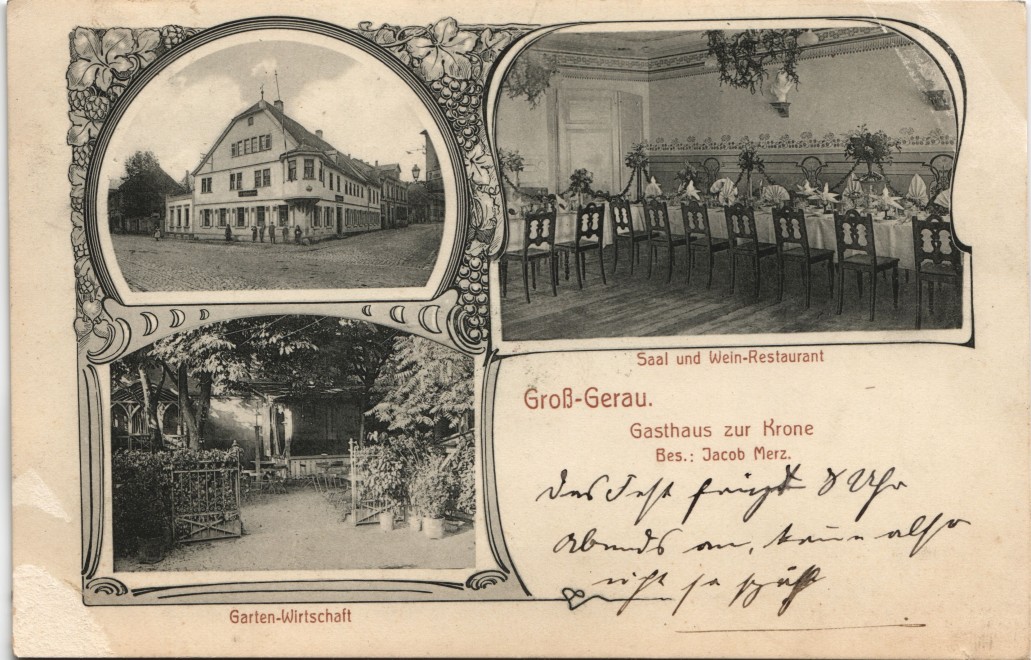 Saal und Wein-Restaurant
Groß-Gerau.
Gasthaus zur Krone
Bes.: Jacob Merz.
Das Fest fängt 8 Uhr
Abends an, also
nicht so spät
Garten-Wirtschaft